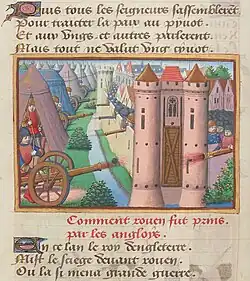 Puis tous les seigneurs sassemblerēt
Pour traicter la paix au pynot.
Et aux ungs et autres parlerent.
Mais tout ne valut ung pynot.
Comment rouen fut prins
par les angloys.
En ce lan le roy dengleterre.
Mist le siege devant rouen.
Ou la si mena grande guerre.